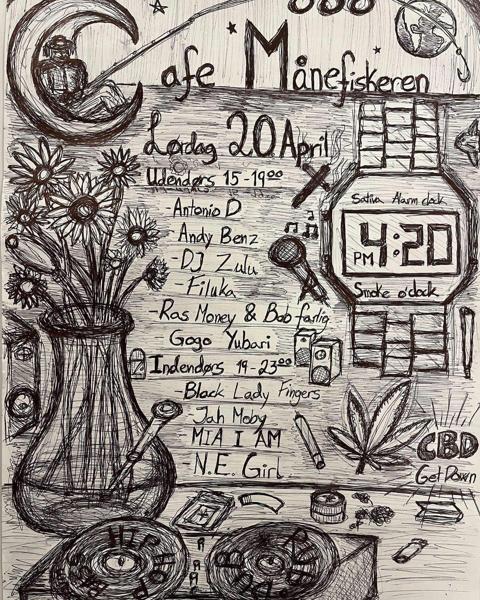 Cafe Månefiskeren
Lørdag 20 April
Udendørs 15-19⁰⁰
-Antonio D
Andy Benz
-DJ Zulu
-Filuka
-Ras Money & Bob fartig
Gogo Yubari
Indendørs 19-23⁰⁰
-Black Lady Fingers
-Jah Moby
MIA I AM
N.E. Girl
Sativa Alarm clock
PM 4:20
Smoke o'clock
CBD
Get Down
HIP HOP
R&B
DUB